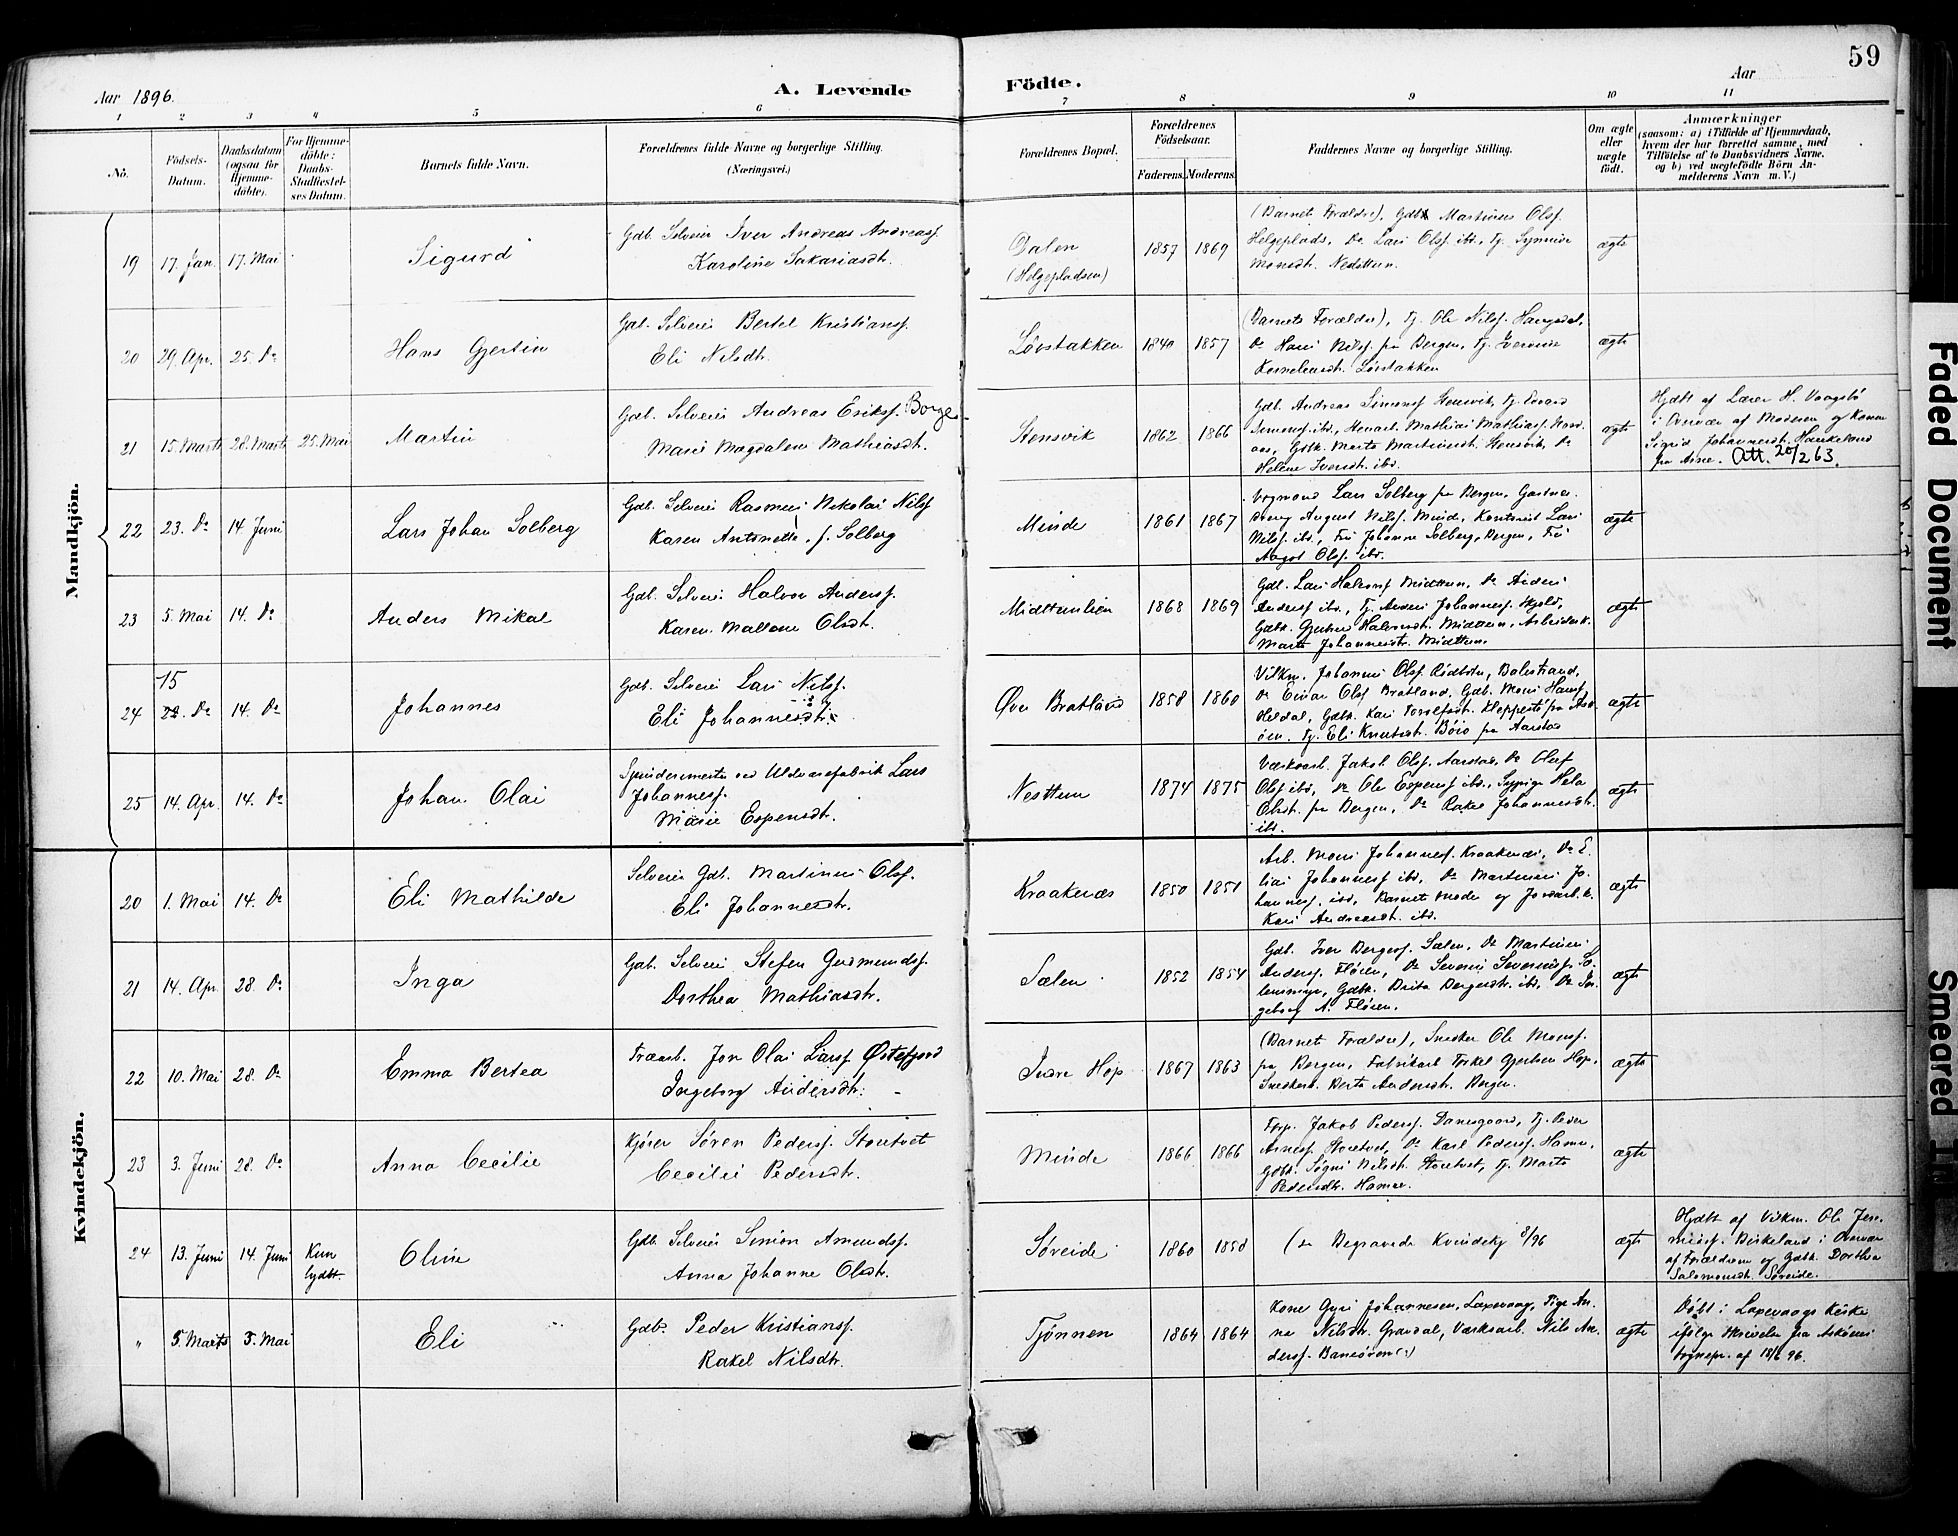 59
Aar 1896.
A. Levende Födte.
Aar
1 2 3 4 5 6 7 8 9 10 11
No.
Födsels-Datum.
Daabsdatum (ogsaa for Hjemmedöbte).
For Hjemmedöbte: Daabs-Stadfæstelses Datum.
Barnets fulde Navn.
Forældrenes fulde Navne og borgerlige Stilling. (Næringsvei.)
Forældrenes Bopæl.
Forældrenes Födselsaar.
Faderens. Moderens.
Faddernes Navne og borgerlige Stilling.
Om ægte eller uægte födt.
Anmærkninger (saasom: a) i Tilfælde af Hjemmedaab, hvem der har forrettet samme, med Tilföielse af to Daabsvidners Navne, og b) ved uægtefödte Börn Anmelderens Navn m. V.)
Mandkjön.
19 17. Jan. 17. Mai
Sigurd
Gdb. Selveier Iver Andreas Andreasf.
Karoline Sakariasdtr.
Dalen
(Helgepladsen)
1857 1869
(Barnets Forældre), Gdbk Martinus Olsf.
Helgeplads, Do Lars Olsf. ibd., Tj. Synnive
Monsdtr. Nesttun.
ægte
20 29. Apr. 25. Do
Hans Gjertin
Gdb. Selveier Bertel Kristiansf.
Eli Nilsdtr.
Løvstakken
1840 1857
(Barnets Forældre), Tj. Ole Nilsf.
Do Hans Nilsf. fra Bergen, Tj.
Korneliusdtr. Løvstakken
ægte
21 15. Marts 28. Marts 25. Mai
Martin
Gdb. Selveier Andreas Eriksf. Borge
Marie Magdalene Mathiasdtr.
Stensvik
1862 1866
Gdb. Andreas Simonsf. Stensvik, Tj. Edvard
Simonsf. ibd., Mathias Mathiasf.
Gdbk. Marta Martinusdtr. Stensvik, Do
Helene Iversdtr. ibd.
ægte
Hjdbt af Lærer H. Vaagsbö
i Overvær af Moderen og Kone
Sigrid Johannesdtr. Haukeland
fra Arne. Att. 20/2 63.
22 23. Do 14. Juni
Lars Johan Solberg
Gdb. Selveier Rasmus Nikolai Nilsf
Karen Antonette, f. Solberg
Minde
1861 1867
Vognmand Lars Solberg fra Bergen, Gartner
August Nilsf. Minde, Kontorist Lars
Nilsf. ibd., Fru Johanne Solberg, Bergen, Fru
Aagot Olsf. ibd.
ægte
23 5. Mai 14. Do
Anders Mikal
Gdb. Selveier Halvor Andersf.
Karen Mallene Olsdtr.
Midttunlien
1868 1869
Gdb. Lars Halvorsf Midttun, Do Anders
Andersf ibd., Tj. Anders Johannesf. Skjold,
Gdbk. Gjertine Halvorsdtr. Midttun, Arbeidersk.
Marta Johannesdtr. Midttun.
ægte
15
24 22. Do 14. Do
Johannes
Gdb. Selveier Lars Nilsf.
Eli Johannesdtr.
Øvre Bratland
1858 1860
Vilkm. Johannes Olsf. Balestrand,
Do Einar Olsf Bratland, Gdb. Mons Hansf.
Heldal, Gdbk. Kari Kleppestö fra Ask-
öen. Tj. Eli Knutsdtr. fra Aarstad
ægte
25 14. Apr. 14. Do
Johan Olai
Spindermester ved Uldvarefabrik Lars
Johannesf.
Marie Espensdtr.
Nesttun
1874 1875
Værksarb. Jakob Olsf. Aarstad, Do Olaf
Olsf ibd, Do Ole Espensf ibd., Sypige
Olsdtr. fra Bergen, Do Rakel Johannesdtr.
ibd.
ægte
Kvindekjön.
20 1. Mai 14. Do
Eli Mathilde
Selveier Gdb. Martinus Olsf.
Eli Johannesdtr.
Kraakenæs
1850 1851
Arb. Mons Johannesf. Kraakenæs, Do E-
lias Johannesf ibd, Do Martinus Jo-
hannesf. ibd, Barnets Moder og Jordarb.k.
Kari Andreasdtr. ibd.
ægte
21 14. Apr. 28. Do
Inga
Gdb. Selveier Stefen Gudmundsf.
Dorthea Mathiasdtr.
Sælen
1852 1854
Gdb. Iver Bergesf. Sælen, Do Martinus
Andersf. Fløien, Do Severin Severinsf. Sæ-
lensminde, Gdbk. Brita Bergesdtr. ibd, Do In-
geborg A. Fløien.
ægte
22 10. Mai 28. Do
Emma Bertea
Træarb. Jon Olai Larsf. Østefjord
Ingeborg Andersdtr.
Indre Hop
1867 1863
(Barnets Forældre), Snedker Ole Monsf.
fra Bergen, Fabrikarb Torkel Gjertsen Hop,
Snedkerk. Berta Andersdtr. Bergen.
ægte
23 3. Juni 28. Do
Anna Cecilie
Kjører Søren Pedersf. Storetvet
Cecilie Pedersdtr.
Minde
1866 1866
Forp. Jakob Pedersf. Danesgaard, Tj. Peder
Arnesf. Storetvet, Do Karl Pedersf. Hamre,
Gdbk. Sögni Nilsdtr. Storetvet, Tj. Marta
Pedersdtr. Hamre.
ægte
24 13. Juni 14. Juni Kun hjdbt.
Oline
Gdb. Selveier Simon Amundsf.
Anna Johanne Olsdtr.
Søreide
1860 1858
(se Begravede Kvindekj 8/96
ægte
Hjdbt af Vilkm. Ole Jere-
miasf. Birkeland i Overvær
af Forældrene og Gdbk. Dorthea
Salomonsdtr. Søreide.
" 5. Marts 3. Mai
Eli
Gdb. Peder Kristiansf.
Rakel Nilsdtr.
Tjønnen
1864 1864
Kone Guri Johannesen, Laxevaag, Pige An-
na Nilsdtr. Gravdal, Værksarb. Nils An-
dersf. Banesören (?)
ægte
Döbt i Laxevaags Kirke
ifölge Skrivelse fra Asköens
Sognepr. af 18/6 96.
Faded Document
Smeared